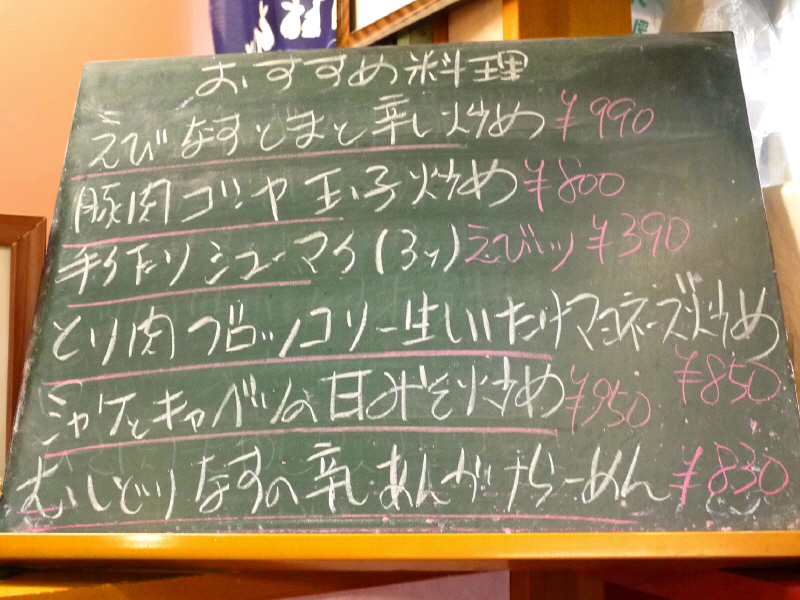 おすすめ料理
えびなすとまと辛し炒め ¥990
豚肉ゴーヤ玉子炒め ¥800
手作りシューマイ(3ケ)えび入り ¥390
とり肉ブロッコリー生しいたけマヨネーズ炒め
¥850
シャケとキャベツの甘みそ炒め ¥950
むしどりなすの辛しあんかけらーめん ¥830